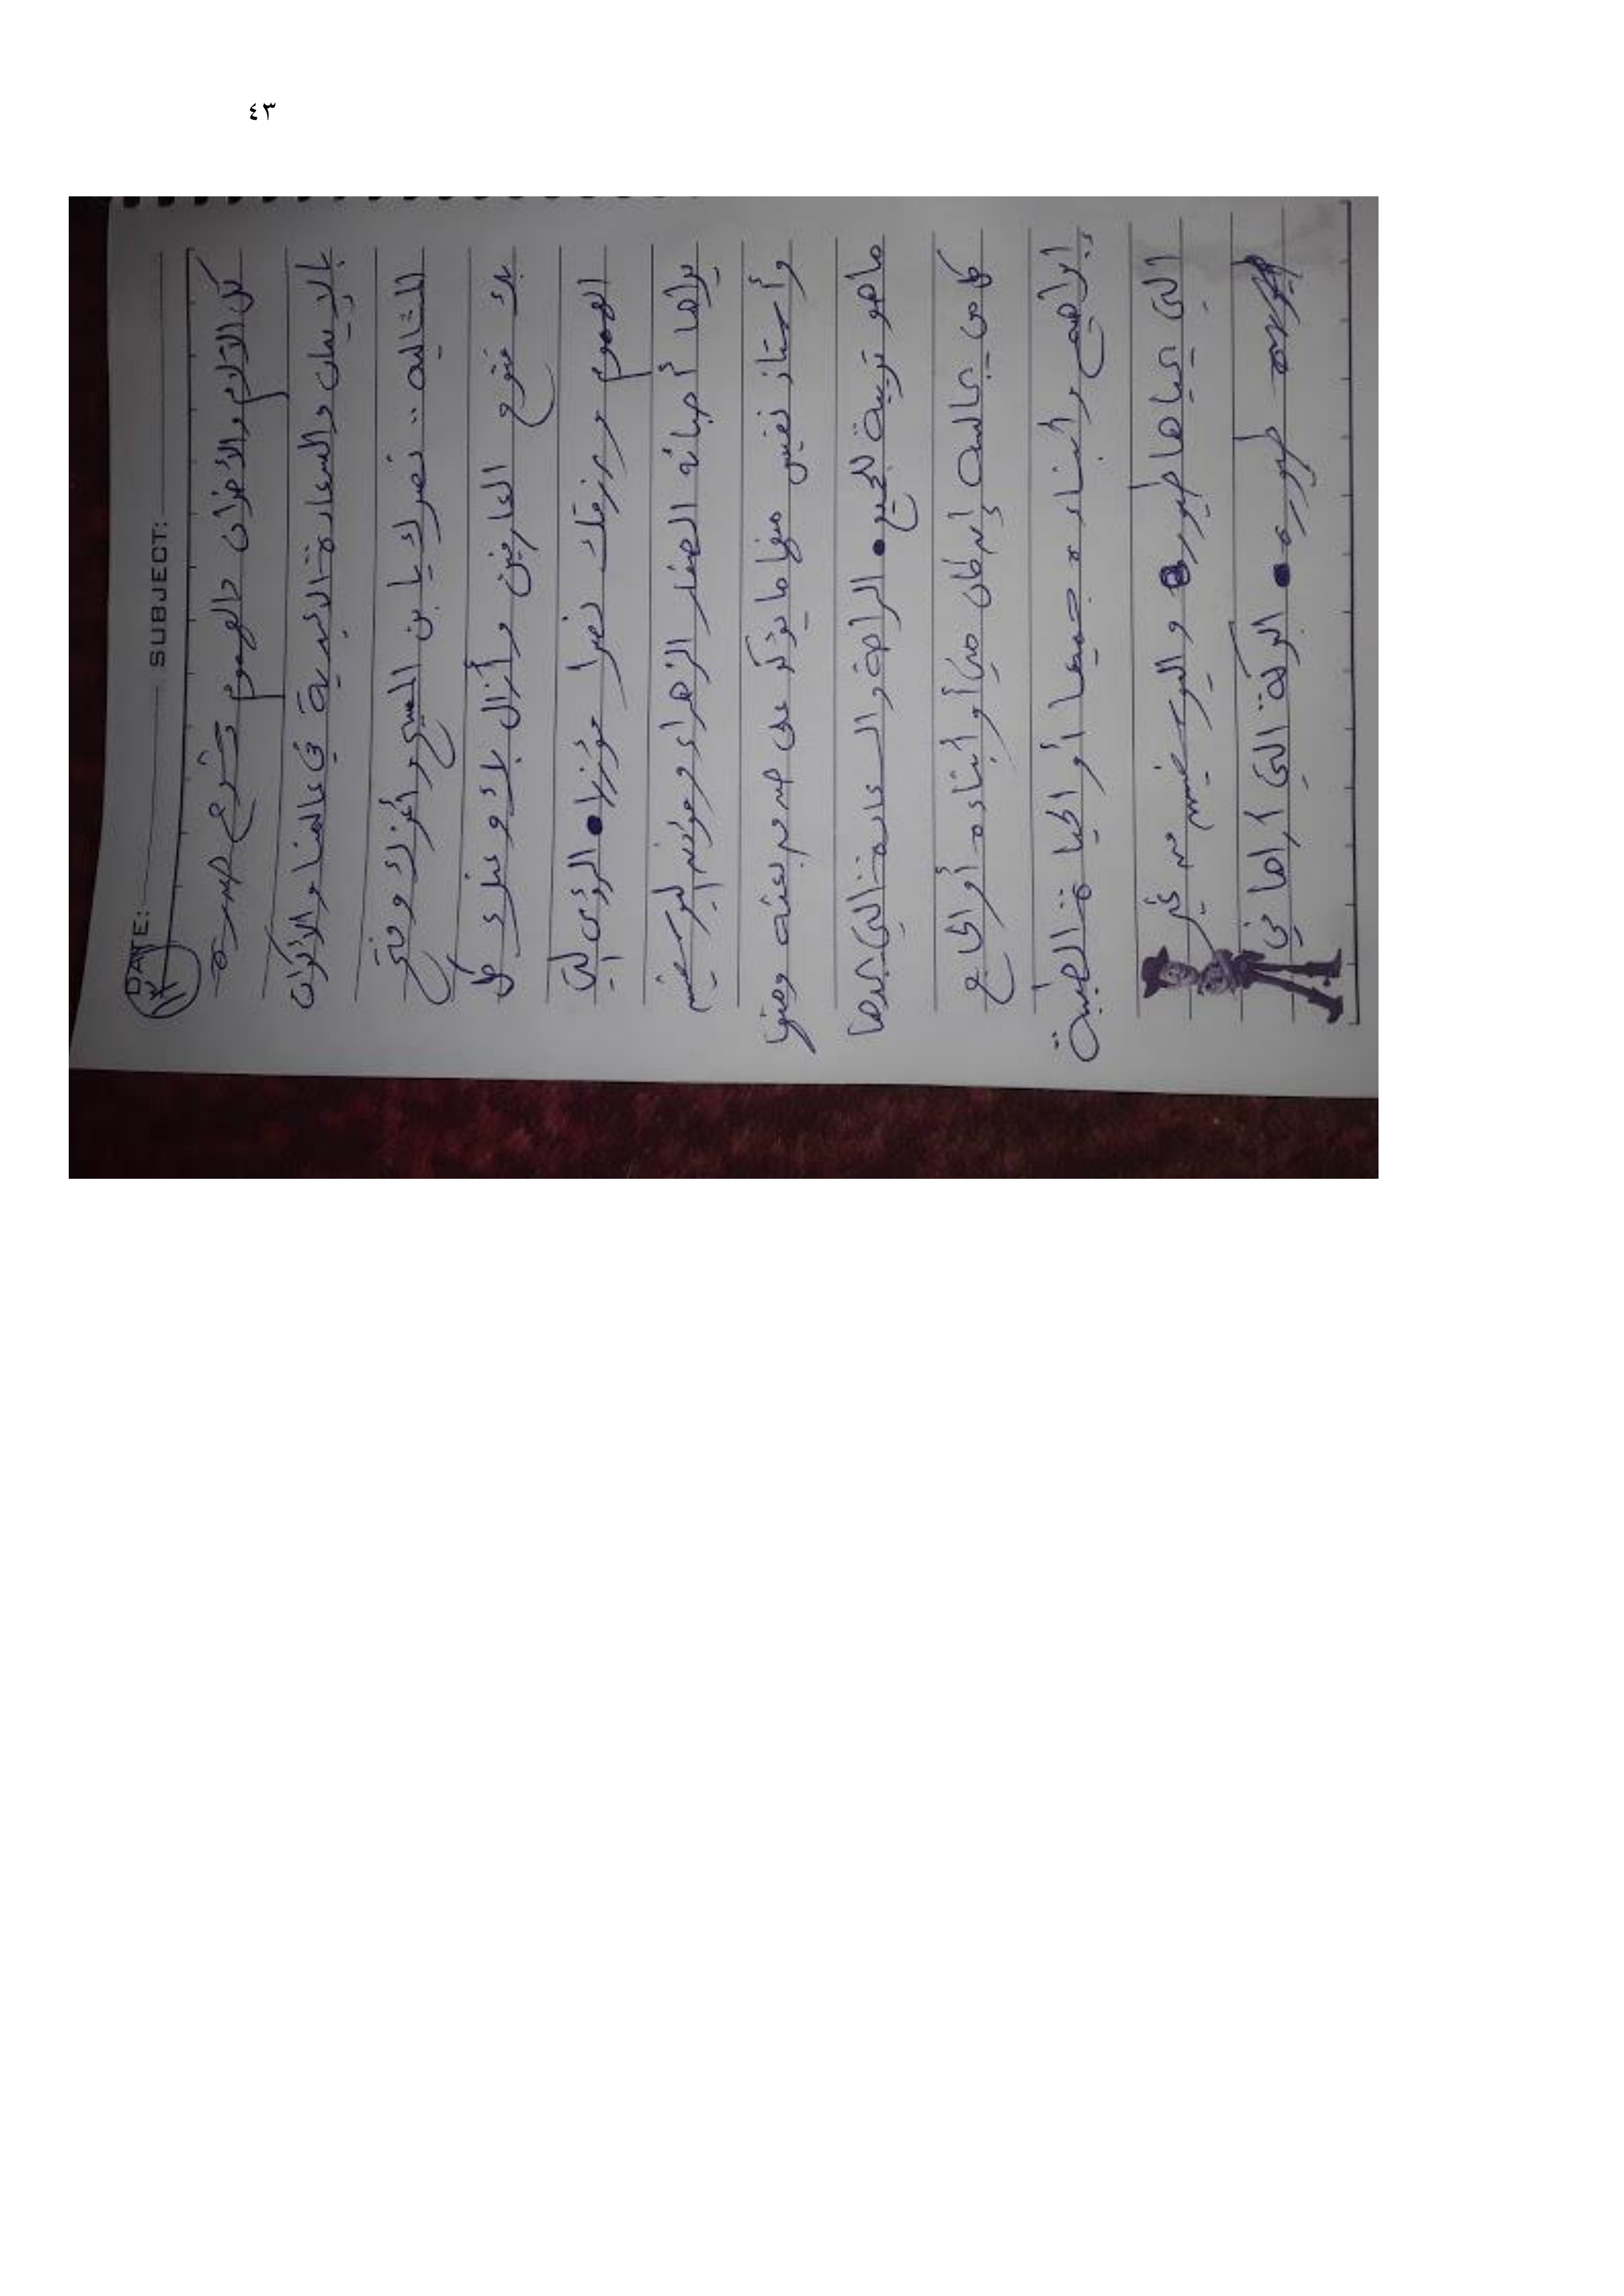 ٤٣
DATE: SUBJECT:
١٣
كل الآلام والأحزان والهموم وشرح صدره
بالإيمان والسعادة الأبدية في عالمنا والأكوان
التالية .. نصرك يا بن المسيح وأعزك وفتح
بك فتوح العارفين وأنزل بلاؤ عدوك كل
الهموم ورزقك نصرا مؤزرا • الرؤى التي
يراها أحبائه الصغار الزهراء
وأستاذ نفيس منها ما يؤكد على صدق بعثه ومنها
ما هو تربية للجميع • الراحة والسعادة التي يجدها
كل من يجالسه إن كان من أبناءه أو الحاج
إبراهيم وأبناءه جميعا أو الحياة الطيبة
التي يحياها غيره • واليوسفيين خير كثير
غيره • البركة التي أراها في